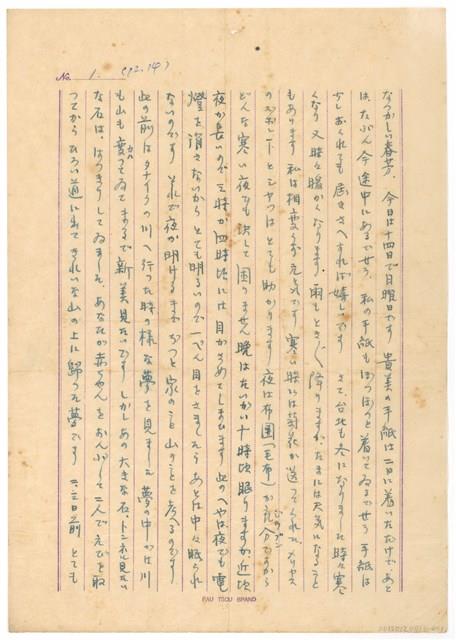 No. 1. (12.14)
なつかしい春芳、今日は十四日で日曜日です 貴美の手紙は二日に着いただけで、あと
は、たぶん今途中にあるでせう、私の手紙もぼつぼつと着いてゐるでせう 手紙は
少しおくれても届きさへすれば嬉しいです さて、台北も冬になりました 時々寒
くなり 又時々暖かくなります、雨もときどき降りますが、たまには天気になること
もあります 私は相変らず元気です 寒い時には菊花が送ってくれた、メリヤス
のズボンとシャツはとても助かります 夜は布團(毛布)が充分ですから
どんな寒い夜でも決して困りません 晩はたいがい十時頃眠りますが近頃
夜が長いので三時か四時頃には目がさめてしまひます 此のへやは夜でも電
燈を消さないからとても明るいので一ぺん目をさましたらあとは中々眠られ
ないのです それで夜が明けるまでずっと家のこと山のことを考へるのです
此の前はタナイクの川へ行った時の様な夢を見ました 夢の中では川
も山も変ってゐてまるで新美見たいです しかしあの大きな石、トンネル見たい
な石は、はっきりしてゐました、あなたが赤ちゃんをおんぶして二人でえびを取
ってからひろい道に出てきれいな山の上に歸った夢です 二、三日前 とても
PAU TSOU BRAND